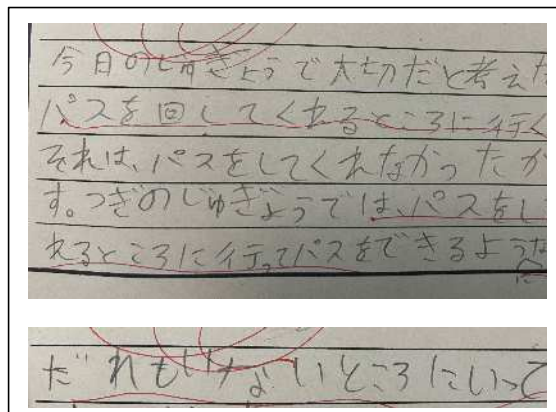 今日のじゅぎょうで大切だと考えた
パスを回してくれるところに行く
それは、パスをしてくれなかったか
す。つぎのじゅぎょうでは、パスをし
れるところに行ってパスをできるような
に
だれもいないところにいって